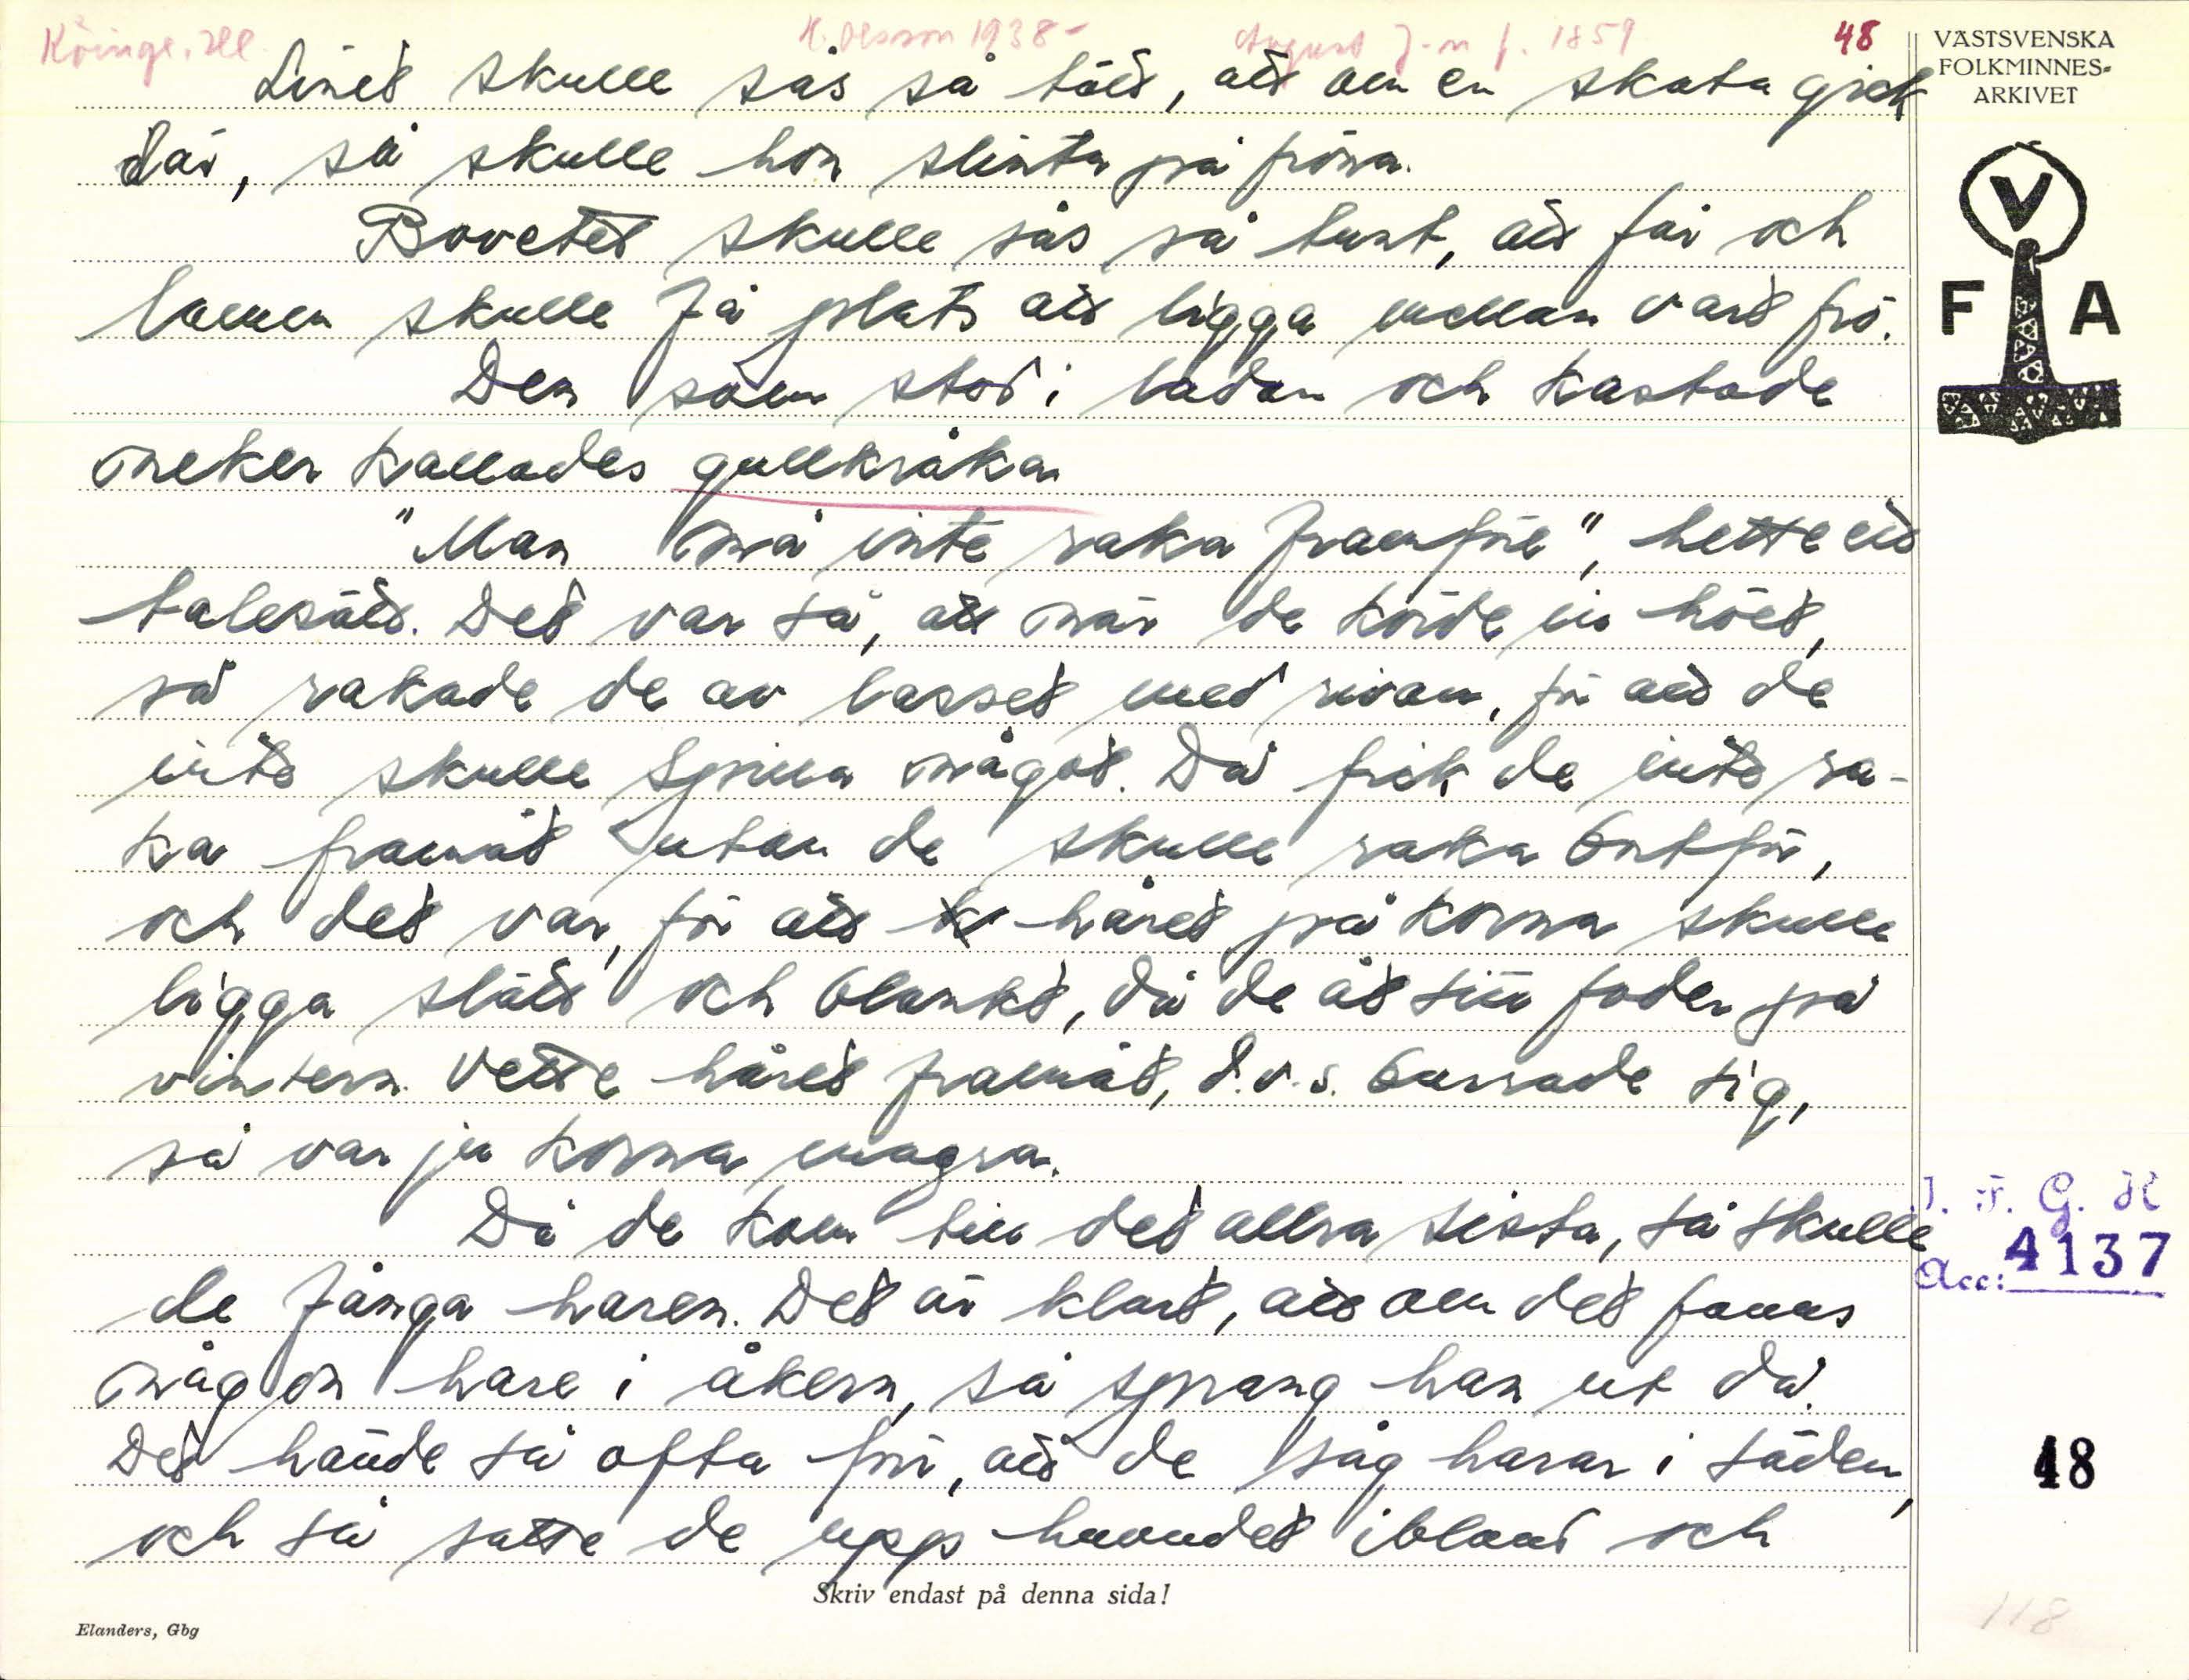 Köinge. Hll.
K. Olsson 1938-
August J-n f. 1859
48
VÄSTSVENSKA
FOLKMINNES-
ARKIVET
Linet skulle sås så tätt, att om en skata gick
där, så skulle hon slinta på fröna.
Bovetet skulle sås så tunt, att får och
lamm skulle få plats att ligga mellan vart frö.
Den som stod i ladan och kastade
neker kallades gullkråkan
"Man må inte raka framför", hette ett
talesätt. Det var så, att när de körde in höet,
så rakade de av lasset med rivan, för att de
inte skulle spilla något. Då fick de inte ra-
ka framåt utan de skulle raka bortför,
och det var, för att håret på korna skulle
ligga slätt och blankt, då de åt sitt foder på
vintern. Vette håret framåt, d.v.s. burrade sig,
så var ju korna magra.
Då de kom till det allra sista, så skulle
de fånga haren. Det är klart, att om det fanns
någon hare i åkern, så sprang han ut då.
Det hände så ofta för, att de såg harar i säden,
och så satte de upp huvudet ibland och
V
F A
I. F. G. H
Acc: 4137
48
118
Skriv endast på denna sida!
Elanders, Gbg